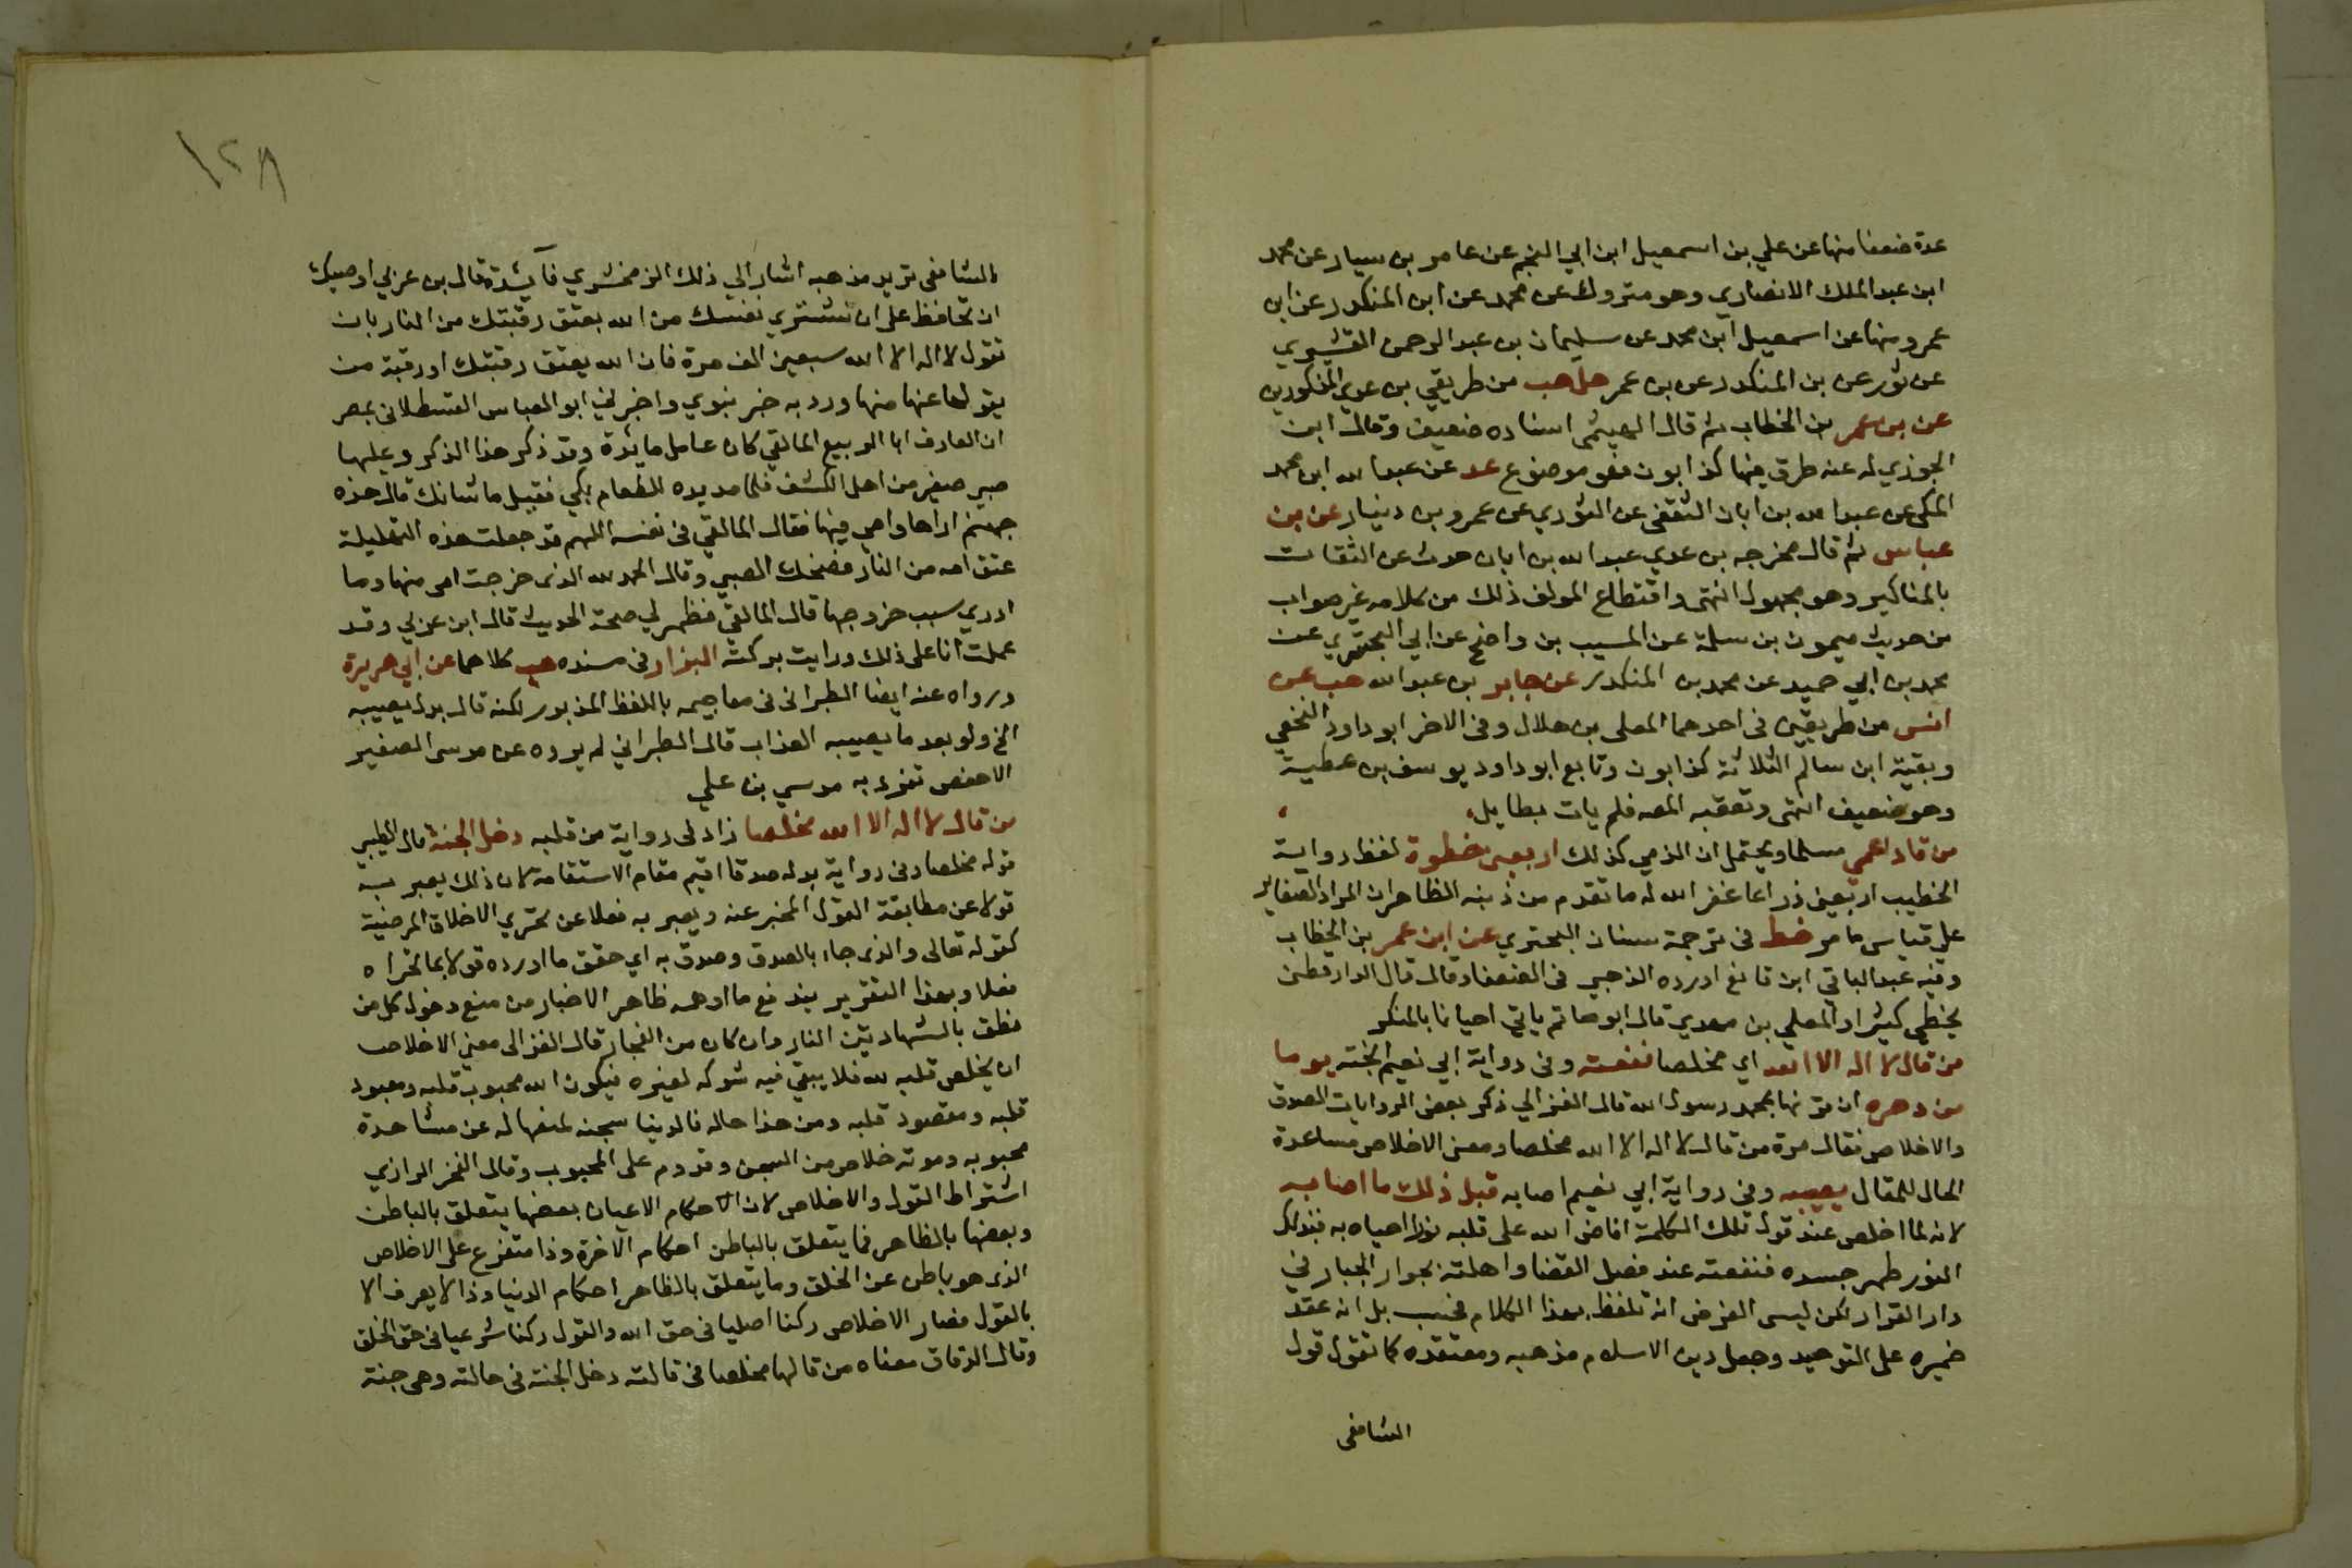 عدة ضعفا منها عن علي بن اسمعيل ابن ابي النجم عن عامر بن سيار عن محمد
ابن عبد الملك الانصاري وهو متروك عن محمد عن ابن المنكدر عن ابن
عمر ومنها عن اسمعيل ابن محمد عن سليمان بن عبد الرحمن القشيري
عن ثور عن بن المنكدر عن بن عمر حل هب من طريقي بن عدي المذكورين
عن بن عمر بن الخطاب ثم قال الهيثمي اسناده ضعيف وقال ابن
الجوزي له عنه طرق فيها كذابون فهو موضوع عد عن عبد الله ابن محمد
المكي عن عبد الله بن ابان الثقفي عن الثوري عن عمرو بن دينار عن بن
عباس ثم قال مخرجه بن عدي عبد الله بن ابان حدث عن الثقات
بالمناكير وهو مجهول انتهى واقتطاع المولف ذلك من كلامه غير صواب
من حديث ميمون بن سلمة عن المسيب بن واضح عن ابي البختري عن
محمد بن ابي حميد عن محمد بن المنكدر عن جابر بن عبد الله هب عن
انس من طريقين في احدهما المعلى بن هلال وفي الاخر ابو داود النخعي
وبقية ابن سالم الثلاثة كذابون وتابع ابو داود يوسف بن عطية
وهو ضعيف انتهى وتعقبه المصه فلم يات بطايل
من قاد اعمي مسلما ويحتمل ان الذمي كذلك اربعين خطوة لفظ رواية
الخطيب اربعين ذراعا غفر الله له ما تقدم من ذنبه الظاهر ان المراد الصغاير
على قياس ما مر خط في ترجمة سنان البحتري عن ابن عمر بن الخطاب
وفيه عبد الباقي ابن قانع اورده الذهبي في الضعفا وقال قال الدارقطني
يخطي كثيرا والمعلي بن مهدي قال ابو حاتم ياتي احيانا بالمنكر
من قال لا اله الا الله اي مخلصا نفعته وفي رواية ابي نعيم انجته يوما
من دهره ان قرنها بمحمد رسول الله قال الغزالي ذكر بعض الروايات الصدق
والاخلاص فقال مرة من قال لا اله الا الله مخلصا ومعنى الاخلاص مساعدة
الحال للمقال يصيبه وفي رواية ابي نعيم اصابه قبل ذلك ما اصابه
لانه لما اخلص عند قول تلك الكلمة افاض الله على قلبه نورا احياه به فبذلك
النور طهر جسده فنفعته عند فصل القضا واهلته بجوار الجبار في
دار القرار لكن ليس الغرض انه تلفظ بهذا الكلام فحسب بل انه عقد
ضميره على التوحيد وجعل دين الاسلام مذهبه ومعتقده كما تقول قول
الشافعي
١٢٨
الشافعي تريد مذهبه اشار الي ذلك الزمخشري فايدة قال بن عربي اوصيك
ان تحافظ على ان تشتري نفسك من الله بعتق رقبتك من النار بان
تقول لا اله الا الله سبعين الف مرة فان الله يعتق رقبتك او رقبة من
يقولها عنها منها ورد به خبر نبوي واخبرني ابو العباس القسطلاني بمصر
ان العارف ابا الربيع المالقي كان على مايدة وقد ذكر هذا الذكر وعليها
صبي صغير من اهل الكشف فلما مد يده للطعام بكي فقيل ما شانك قال هذه
جهنم اراها وامي فيها فقال المالقي في نفسه اللهم قد جعلت هذه التهليلة
عتق امه من النار فضحك الصبي وقال الحمد لله الذي خرجت امي منها وما
ادري سبب خروجها قال المالقي فظهر لي صحة الحديث قال ابن عربي وقد
عملت انا على ذلك ورايت بركته البزار في مسنده هب كلاهما عن ابي هريرة
ورواه عنه ايضا الطبراني في معاجيمه باللفظ المذبور لكنه قال بدل يصيبه
الخ ولو بعد ما يصيبه العذاب قال الطبراني لم يروه عن موسى الصغير
الا حفص تفرد به موسي بن علي
من قال لا اله الا الله مخلصا زاد في رواية من قلبه دخل الجنة قال الطيبي
قوله مخلصا وفي رواية بدله صدقا اقيم مقام الاستقامة لان ذلك يعبر به
قولا عن مطابقة القول المخبر عنه ويعبر به فعلا عن تحري الاخلاق المرضية
كقوله تعالى والذي جاء بالصدق وصدق به اي حقق ما اورده قولا بما تحراه
فعلا وبهذا التقرير يندفع ما اوهمه ظاهر الاخبار من منع دخول كل من
نطق بالشهادتين النار وان كان من الفجار قال الغزالى معنى الاخلاص
ان يخلص قلبه لله فلا يبقي فيه شركه لغيره فيكون الله محبوب قلبه ومعبود
قلبه ومقصود قلبه ومن هذا حاله فالدنيا سجنه لمنعها له عن مشاهدة
محبوبه وموته خلاص من السجن وقدوم على المحبوب وقال الفخر الرازي
اشتراط القول والاخلاص لان الاحكام الاعيان بعضها يتعلق بالباطن
وبعضها بالظاهر فما يتعلق بالباطن احكام الاخرة وذا متفرع على الاخلاص
الذي هو باطن عن الخلق وما يتعلق بالظاهر احكام الدنيا وذا لا يعرف الا
بالقول فصار الاخلاص ركنا اصليا في حق الله والقول ركنا شرعيا في حق الخلق
وقال الدقاق معناه من قالها مخلصا في قالته دخل الجنة في حالته وهى جنة